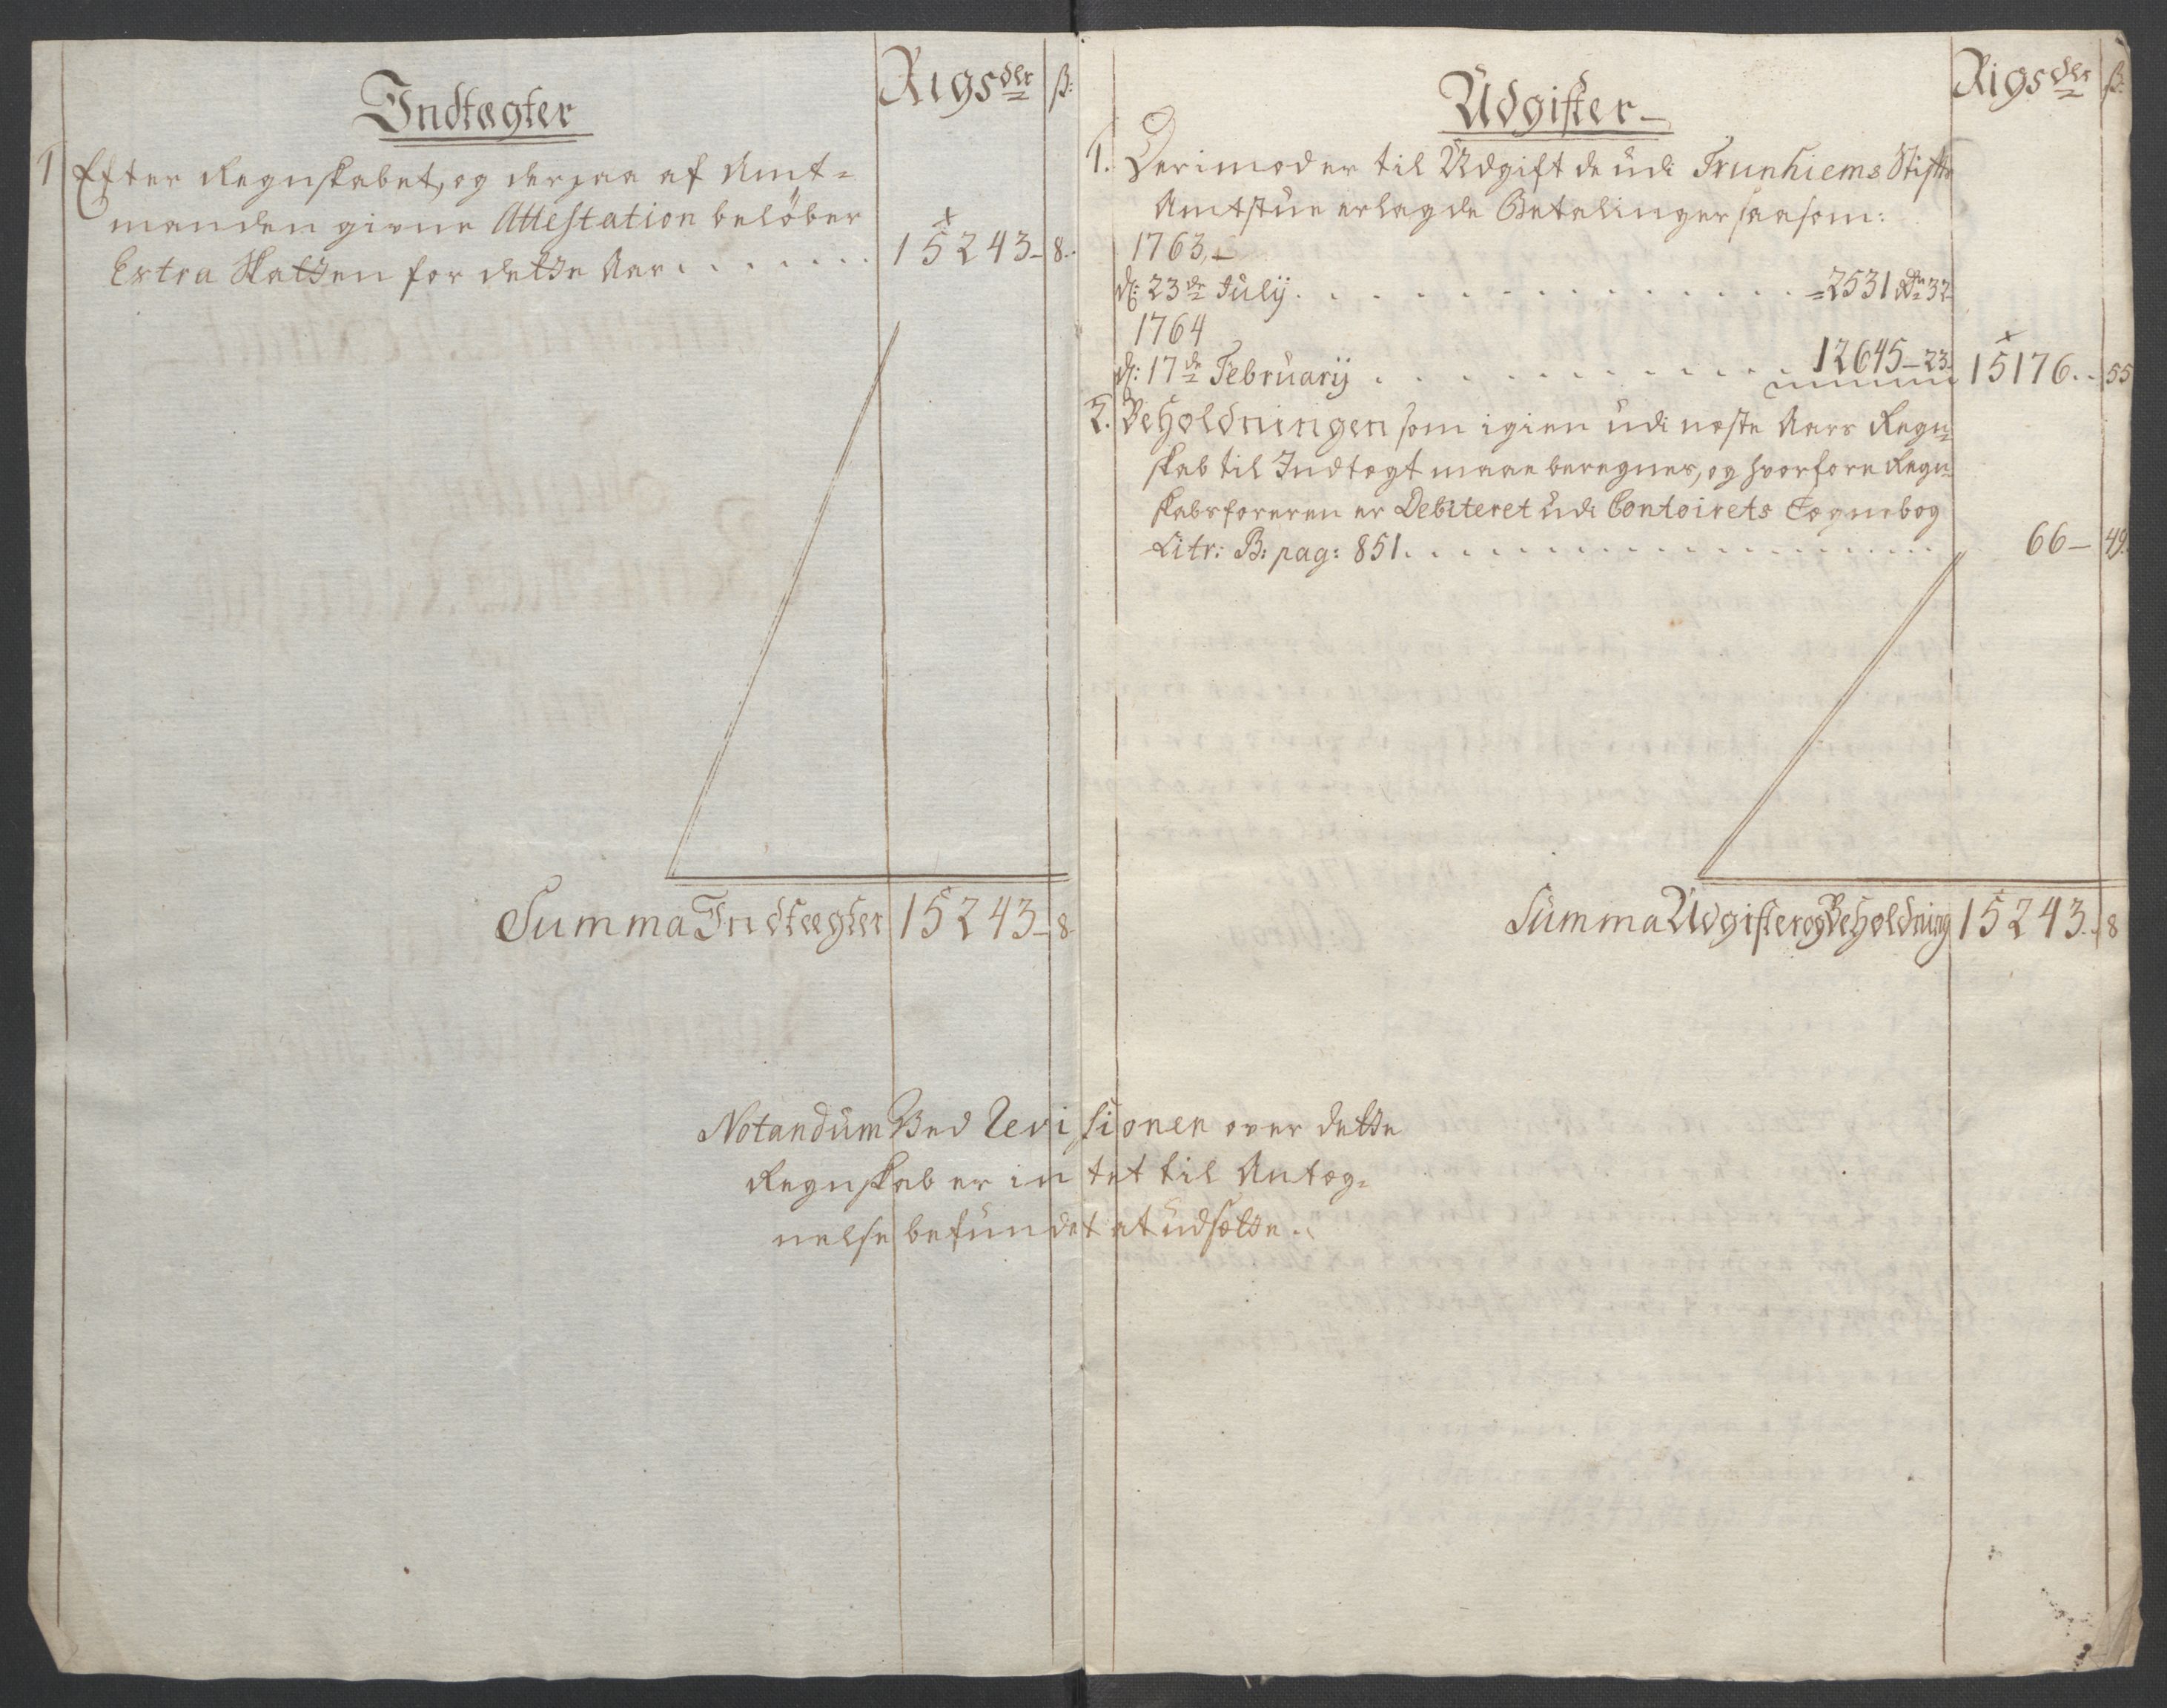 Indtægter
Rigsdlr ß:
1 Efter Regnskabet, og derpaa af Amt-
manden givne Attestation belöber
Extra Skatten for dette Aar . . . . . . . 15243- 8.
Summa Indtægter 15243- 8
Udgifter-
Rigsdlr ß:
1. Derimod er til Udgift de udi Trunhiems Stifts
Amtstue erlagde Betalinger saasom:
1763.-
d: 23de Julij . . . . . . . . . . . . . = 2531 Rdr 32
1764
d: 17de Februarij . . . . . . . . . . . 12645- 23 15176.. 55
2. Beholdningen som igien udi neste Aars Regn-
skab til Indtegt maae beregnes, og hvorfore Regn-
skabsforeren er Debiteret udi Contoirets Tegnebog
Litr: B: pag: 851 . . . . . . . . . . . . . . . . . . 66- 49.
Summa Udgifter og Beholdning 15243.. 8
Notandum Ved Revisionen over dette
Regnskab er intet til Anteg-
nelse befundet at udsætte.